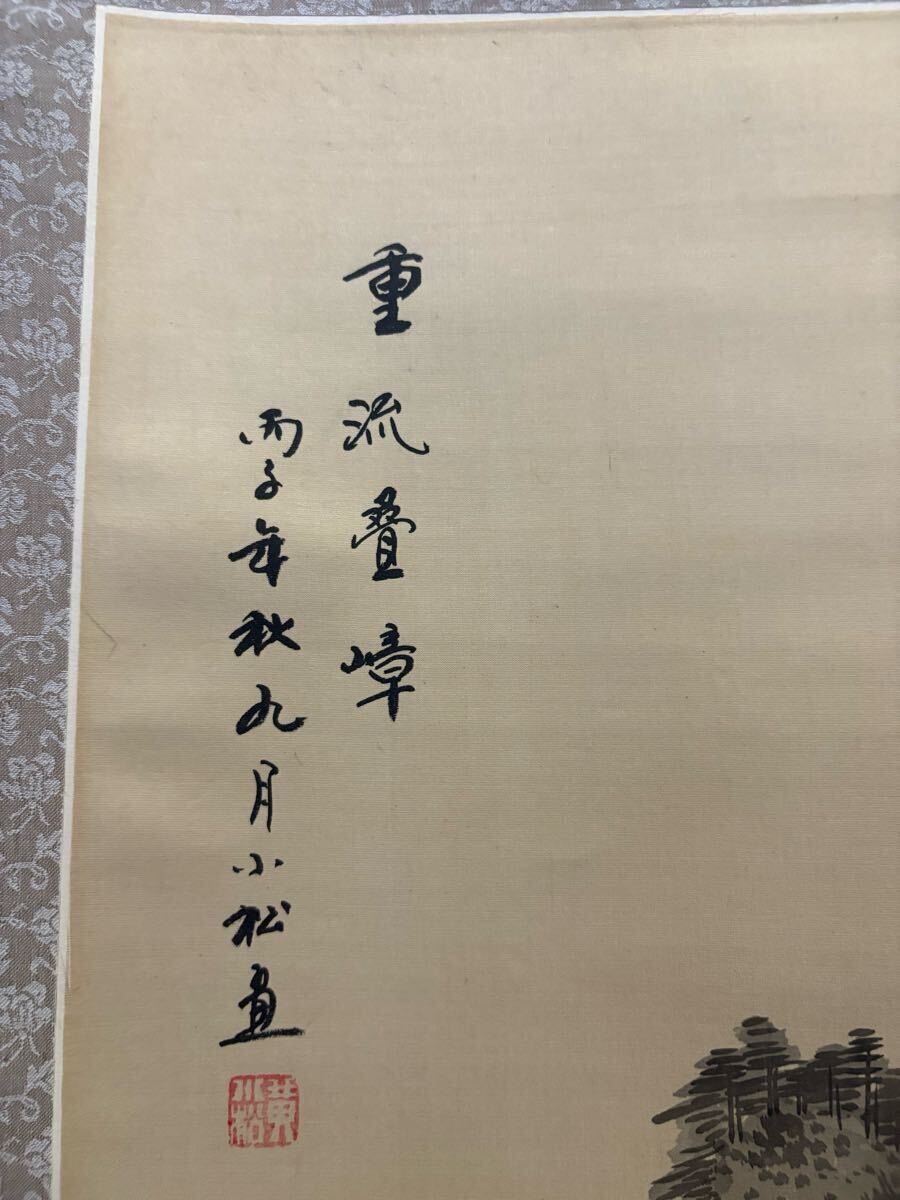 重流疊嶂
丙子年秋九月小松畫
黄小松